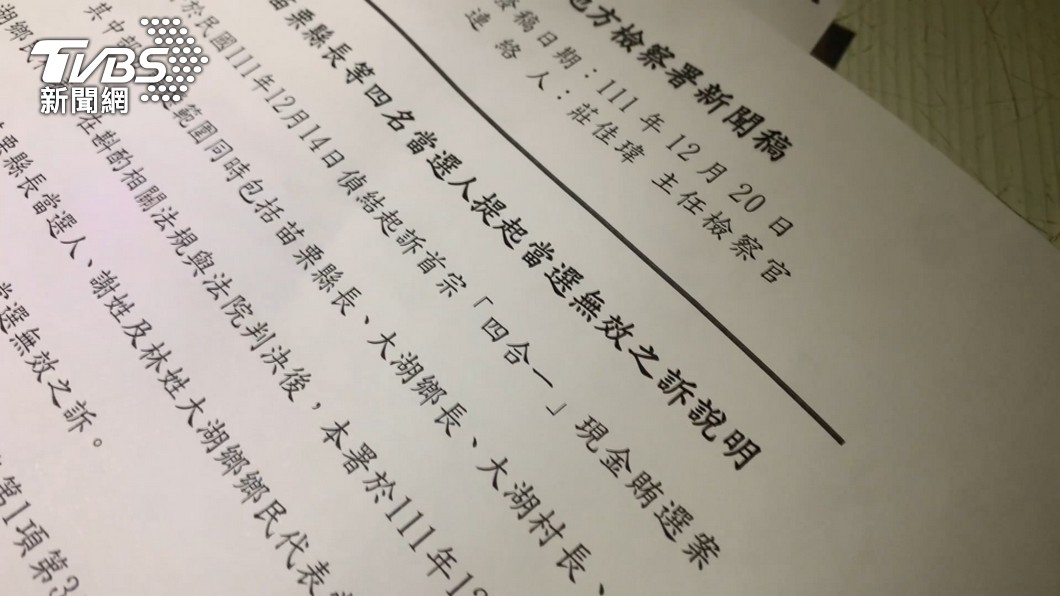 TVBS
新聞網
地方檢察署新聞稿
發稿日期：111 年 12 月 20 日
連 絡 人：莊佳瑋 主任檢察官
苗栗縣長等四名當選人提起當選無效之訴說明
於民國111年12月14日偵結起訴首宗「四合一」現金賄選案
其中 範圍同時包括苗栗縣長、大湖鄉長、大湖村長、
湖鄉民代 在斟酌相關法規與法院判決後，本署於111年12
苗栗縣長當選人、謝姓及林姓大湖鄉鄉民代表當
當選無效之訴。
第1項第3